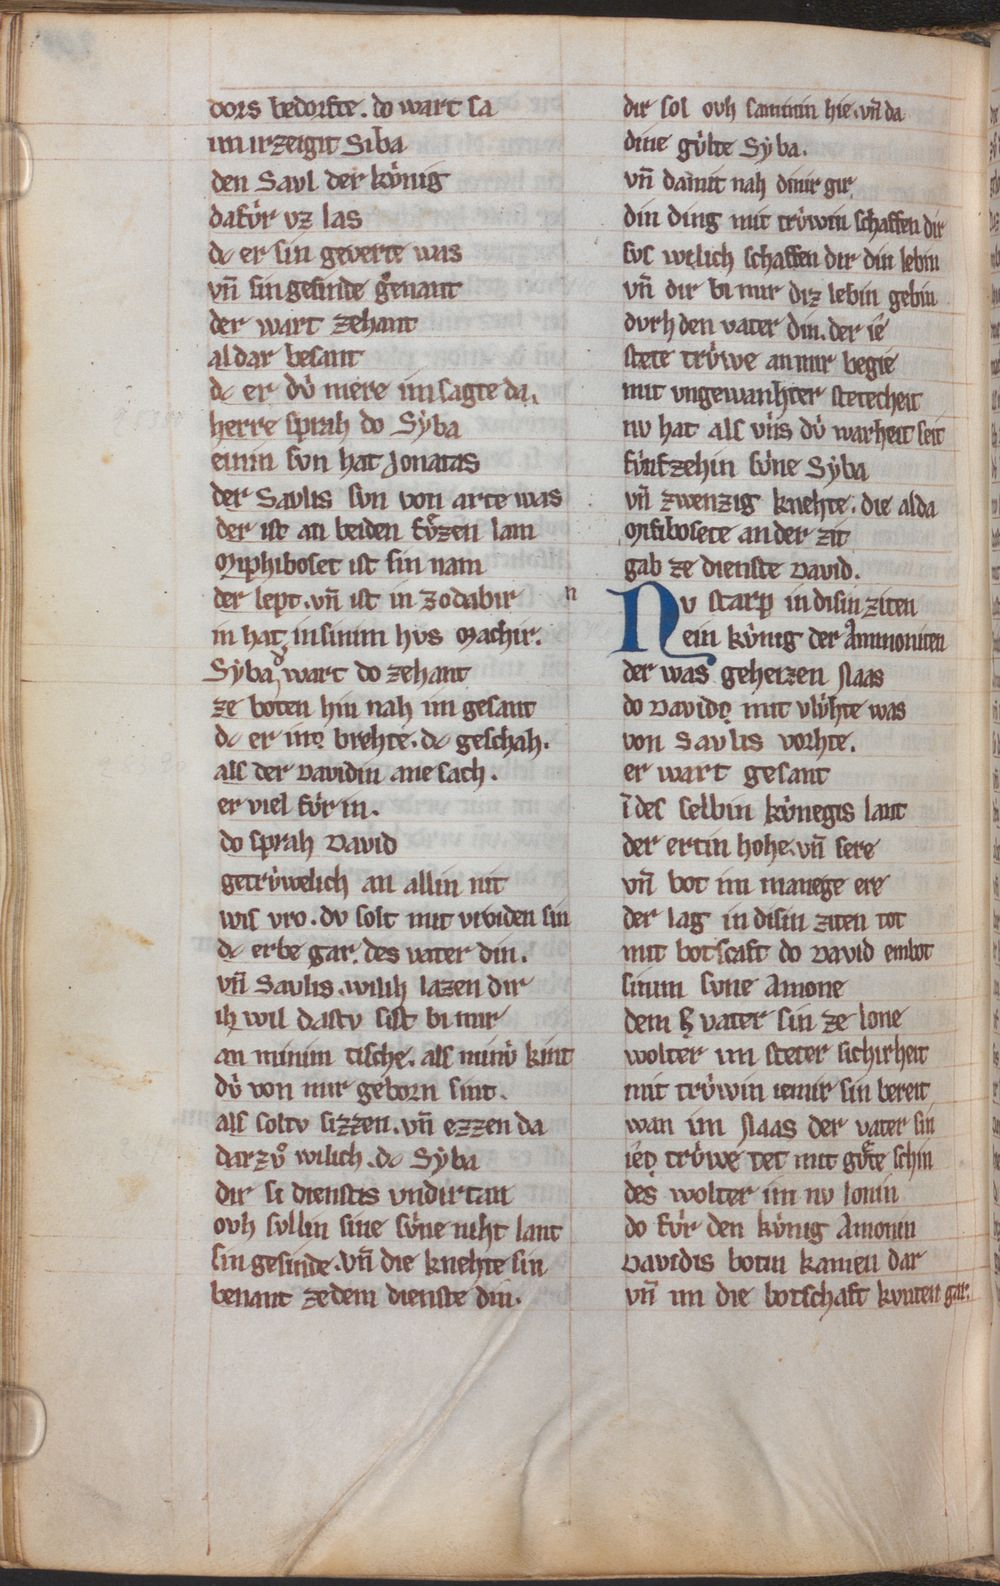 dors bedorfte. do wart sa
im irzeigit Siba
den Savl der kv́nig
dafv́r vz las
dc er sin geverte was
vn̄ sin gesinde genant
der wart zehant
aldar besant
dc er dv́ mere im sagte da.
herre sprah do Sẏba
einin svn hat Jonatas
der Savlis svn von arte was
der ist an beiden fvͤzen lam
Miphiboset ist sin nam
der lept. vn̄ ist in Zodabir
in hat in sinim hvs Machir.
Sẏba wart do zehant
ze boten hin nah im gesant
dc er im brehte. dc geschah.
als der Davidin ane sach.
er viel fv́r in.
do sprah David
getrv́welich an allin nit
wis vro. dv solt mit vrviden sin
dc erbe gar. des vater din.
vn̄ Savlis. wilih lazen dir
ih wil dastv sist bi mir
an minim tische. als minv́ kint
dv́ von mir geborn sint.
als soltv sizzen. vn̄ ezzen da
darzvͦ wilich. dc Sẏba
dir si dienstis vndirtan
ovh svllin sine sv́ne niht lant
sin gesinde. vn̄ die knehte sin
benant ze dem dienste din.
dir sol ovh saminin hie. vn̄ da
dine gv́lte Sẏba.
vn̄ damit nah dinir gir
din ding mit trv́win schaffen dir
svs wilich schaffen dir din lebin
vn̄ dir bi mir diz lebin gebin
dvrh den vater din. der ie
stete trv́we an mir begie
mit vngewanhter stetecheit
nv hat als vns dv́ warheit seit
fv́nfzehin sv́ne Sẏba
vn̄ zwenzig knehte. die alda
Mifibosete an der zit
gab ze dienste David.
n
Nv starp in disin ziten
ein kv́nig der Ammoniten
der was geheizen Naas
do Davide mit vlv́hte was
von Savlis vorhte.
er wart gesant
ī des selbin kv́negis lant
der ertin hohe. vn̄ sere
vn̄ bot im manege ere
der lag in disin ziten tot
mit botscaft do David enbot
sinim svne Amone
dem vater sin ze lone
wolter im steter sichirheit
mit trv́win iemir sin bereit
wan im Naas der vater sin
ie trv́we tet mit gvͤte schin
des wolter im nv lonin
do fv́r den kv́nig Amonin
Davidis botin kamen dar
vn̄ im die botschaft kvnten gar.